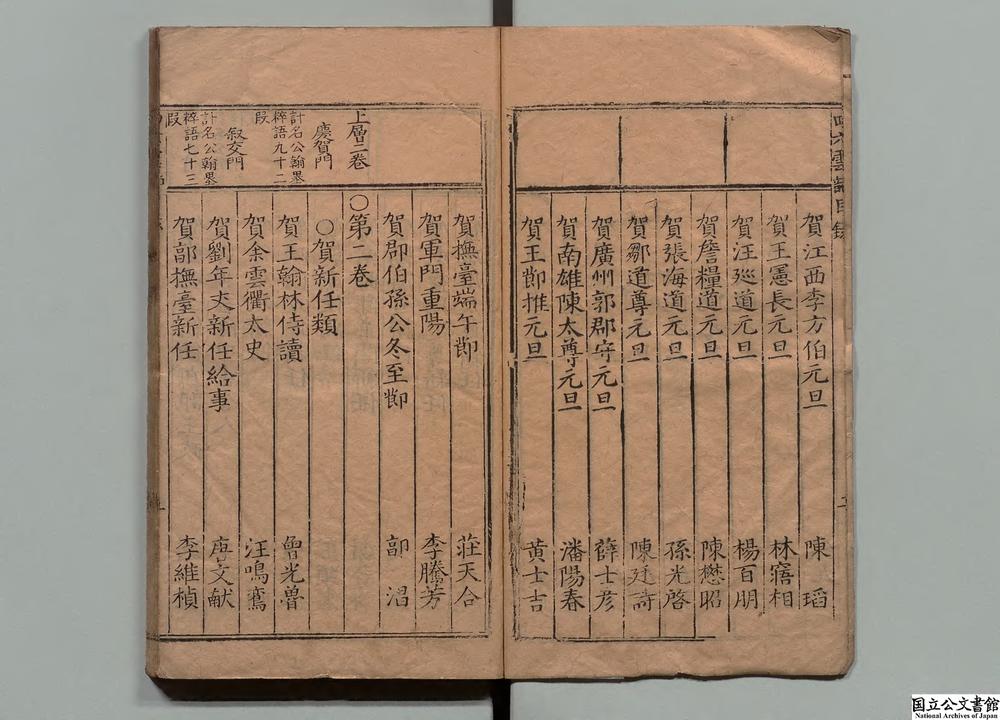 賀江西李方伯元旦 陳瑫
賀王憲長元旦 林寤相
賀汪廵道元旦 楊百朋
賀詹糧道元旦 陳懋昭
賀張海道元旦 孫光啓
賀鄒道尊元旦 陳廷詩
賀廣州郭郡守元旦 薛士彦
賀南雄陳太尊元旦 潘陽春
賀王節推元旦 黄士吉
賀撫臺端午節 莊天合
賀軍門重陽 李騰芳
賀郡伯孫公冬至節
上層二卷
○第二卷
慶賀門
○賀新任類
計名公翰墨
粹語九十二
段
賀王翰林侍讀
賀余雲衢太史 汪鳴鸞
叙交門
賀劉年丈新任給事 唐文献
計名公翰墨
粹語七十三
段
賀郭撫臺新任 李維楨
国立公文書館
National Archives of Japan